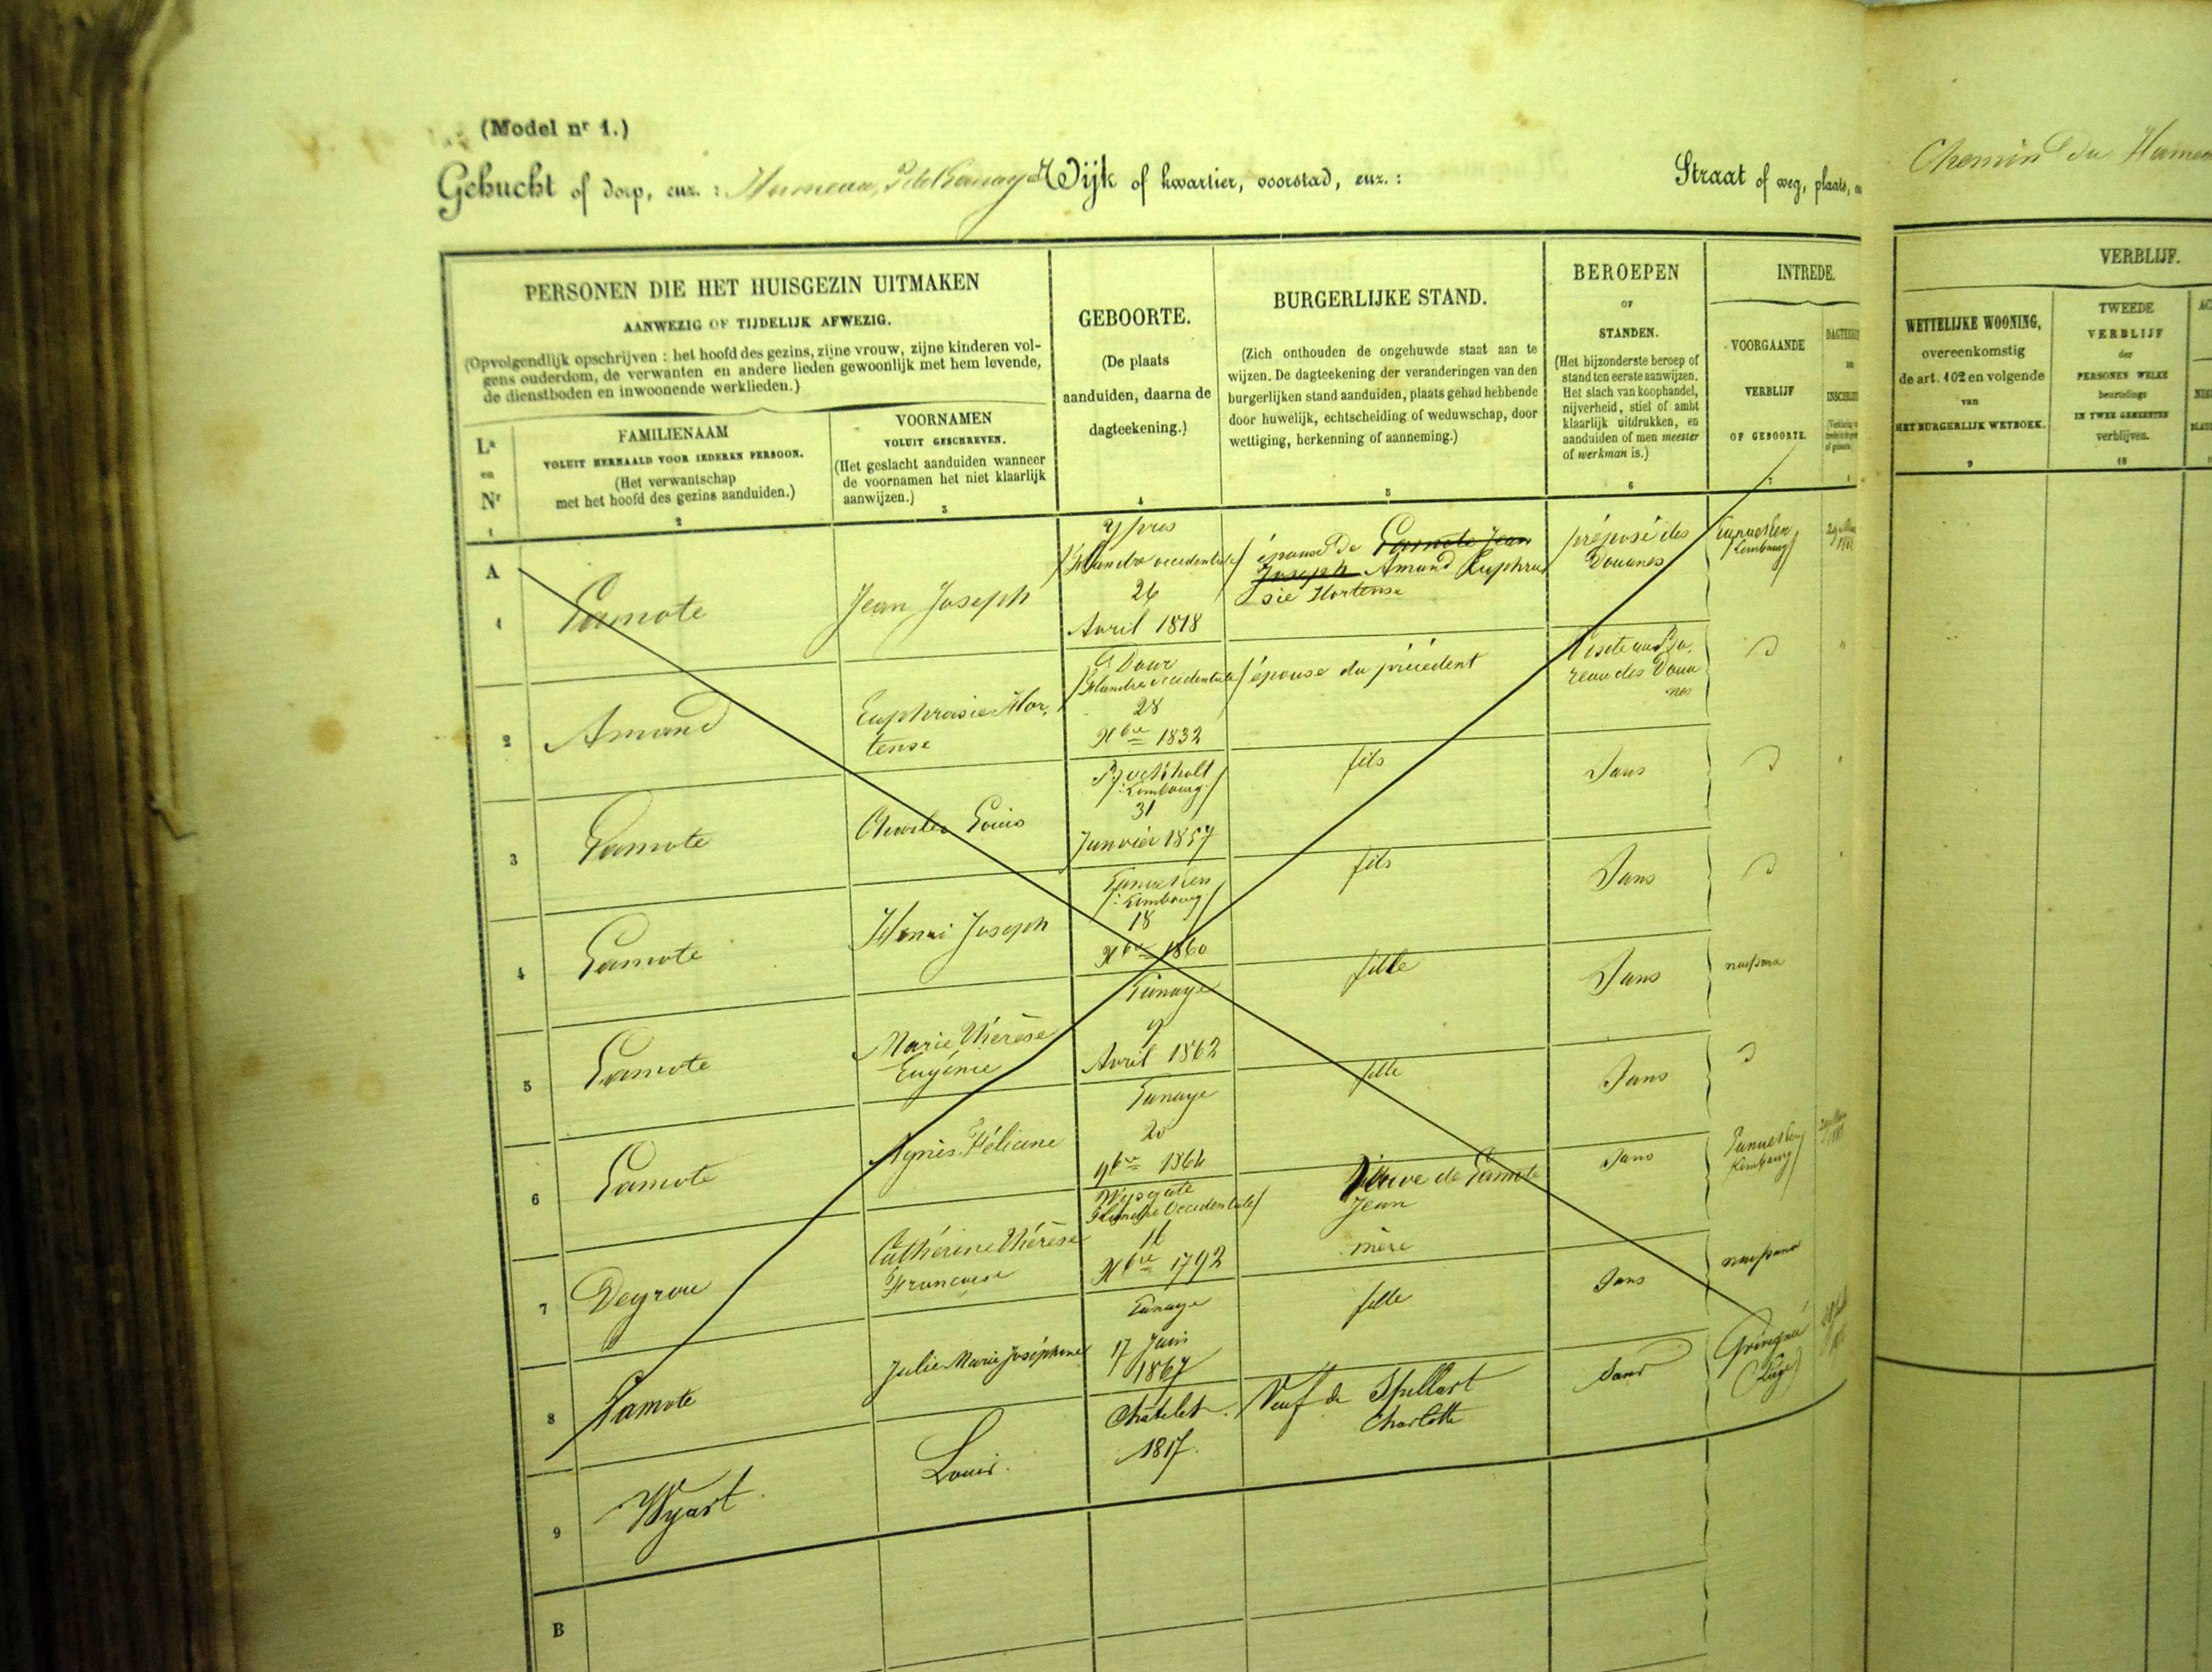 (Model nr 1.)
Gehucht of dorp, enz. : Wijk of kwartier, voorstad, enz. :
Straat of weg, plaats,
Chemin du
PERSONEN DIE HET HUISGEZIN UITMAKEN
AANWEZIG OF TIJDELIJK AFWEZIG.
(Opvolgendlijk opschrijven : het hoofd des gezins, zijne vrouw, zijne kinderen vol-
gens ouderdom, de verwanten en andere lieden gewoonlijk met hem levende,
de dienstboden en inwoonende werklieden.)
La
en
Nr
1
FAMILIENAAM
VOLUIT HERHAALD VOOR IEDEREN PERSOON.
(Het verwantschap
met het hoofd des gezins aanduiden.)
2
VOORNAMEN
VOLUIT GESCHREVEN.
(Het geslacht aanduiden wanneer
de voornamen het niet klaarlijk
aanwijzen.)
3
GEBOORTE.
(De plaats
aanduiden, daarna de
dagteekening.)
4
BURGERLIJKE STAND.
(Zich onthouden de ongehuwde staat aan te
wijzen. De dagteekening der veranderingen van den
burgerlijken stand aanduiden, plaats gehad hebbende
door huwelijk, echtscheiding of weduwschap, door
wettiging, herkenning of aanneming.)
5
BEROEPEN
OF
STANDEN.
(Het bijzonderste beroep of
stand ten eerste aanwijzen.
Het slach van koophandel,
nijverheid, stiel of ambt
klaarlijk uitdrukken, en
aanduiden of men meester
of werkman is.)
6
INTREDE.
VOORGAANDE
VERBLIJF
OF GEBOORTE.
7
VERBLIJF.
WETTELIJKE WOONING,
overeenkomstig
de art. 102 en volgende
van
HET BURGERLIJK WETBOEK.
9
TWEEDE
VERBLIJF
der
PERSONEN WELKE
beurtelings
IN TWEE GEMEENTEN
verblijven.
10
A
1
Lamote
Jean Joseph
Ypres
Flandre occidentale
26
Avril 1818
épouse de Lamote Jean
Joseph Amand Euphra
sie Hortense
préposé des
Douanes
2
Amand
Euphrasie Hor,
tense
Flandre occidentale
28
Xbre 1832
épouse du précédent
reau des Doua
nes
3
Lamote
Charles Louis
Bockholt
Limbourg
31
Janvier 1857
fils
Sans
4
Lamote
Henri Joseph
Limbourg
18
Xbre 1860
fils
Sans
5
Lamote
Marie Thérèse
Eugénie
Lanaye
9
Avril 1862
fille
Sans
6
Lamote
Agnès Féliciene
Lanaye
20
9bre 1864
fille
Sans
7
Catherine Thérèse
Francoise
Flandre Occidentale
16
Xbre 1792
Veuve de Lamote
Jean
mère
Sans
Limbourg
8
Lamote
Julie Marie Joséphine
Lanaye
17 Juin
1867
fille
Sans
9
Wyart.
Louis.
Châtelet.
1817.
Veuf de
Charlotte
Sans
B